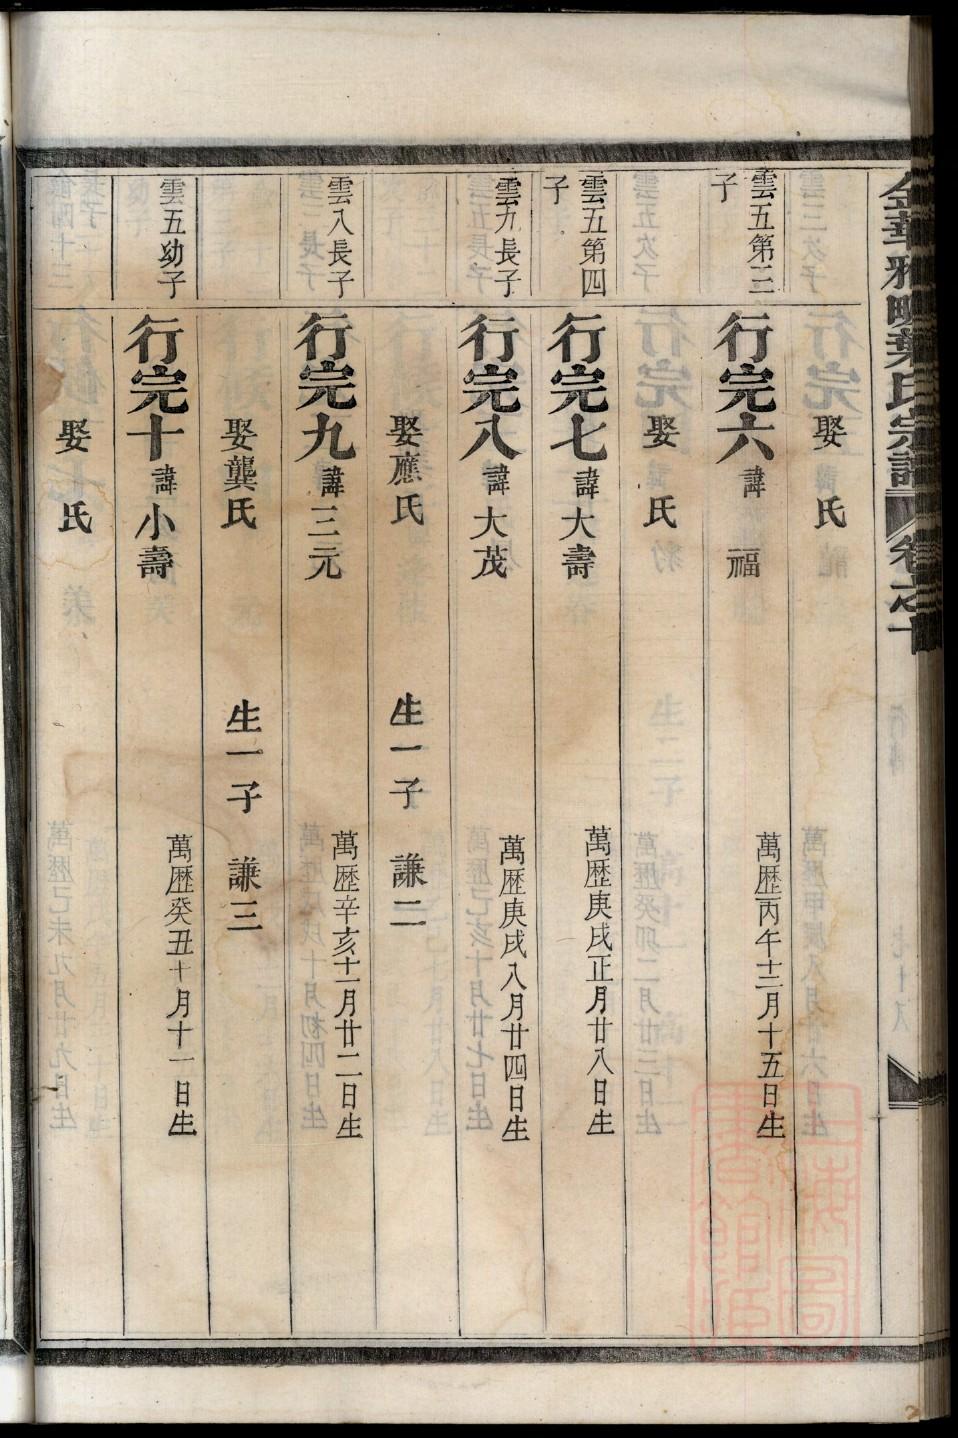 金華雅畈葉氏宗譜
娶 氏
雲五第三子
行完六 諱 福 萬歷丙午十二月十五日生
娶 氏
雲五第四子
行完七 諱大壽 萬歷庚戌正月廿八日生
雲九長子
行完八 諱大茂 萬歷庚戌八月廿四日生
娶應氏 生一子 謙二
雲八長子
行完九 諱三元 萬歷辛亥十一月廿二日生
娶龔氏 生一子 謙三
雲五幼子
行完十 諱小壽 萬歷癸丑十月十一日生
娶 氏